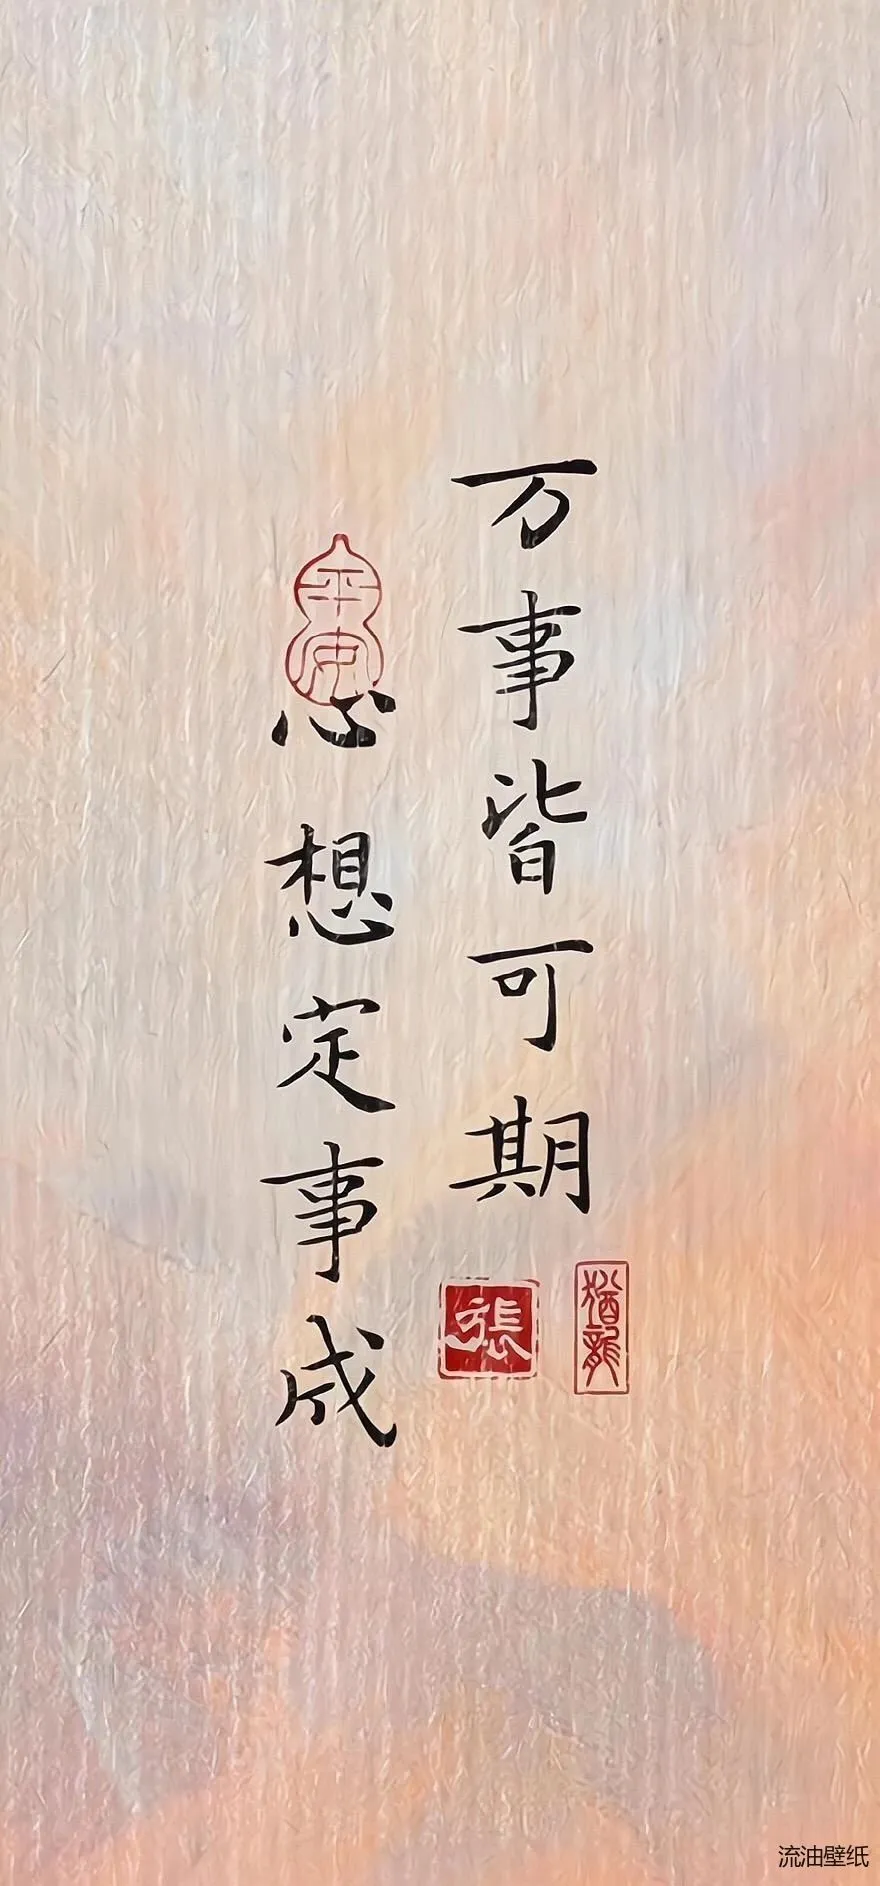 万事皆可期
心想定事成
平安
張
猶龍
流油壁纸